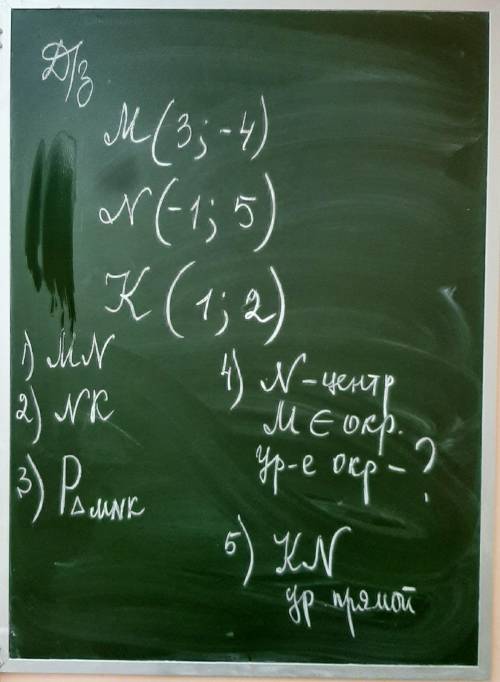 Д/з
M(3; -4)
N(-1; 5)
K(1; 2)
1) MN
2) NK
3) P△MNK
4) N - центр
M ∈ окр.
ур-е окр - ?
5) KN
ур. прямой